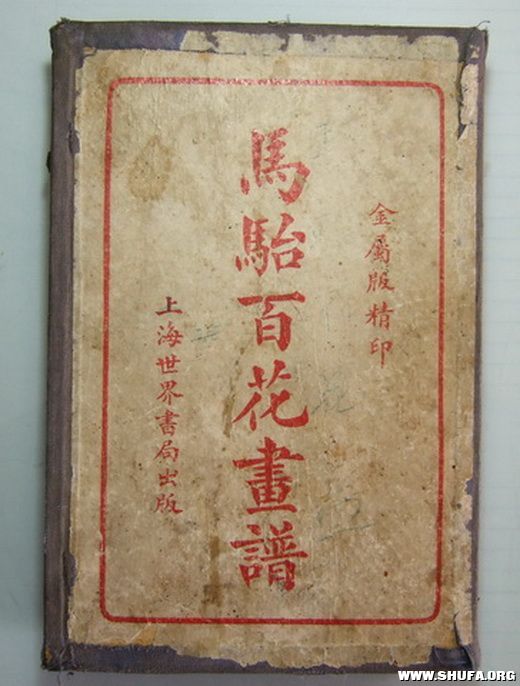 金屬版精印
馬駘百花畫譜
上海世界書局出版
WWW.SHUFA.ORG